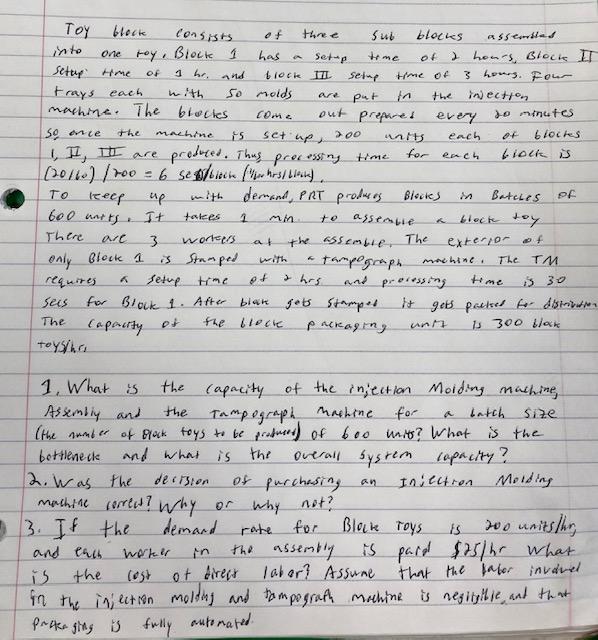 Toy block consists of three sub blocks assembled
into one toy. Block 1 has a setup time of 2 hours, Block II
setup time of 1 hr. and block III setup time of 3 hours. Four
trays each with 50 molds are put in the injection
machine. The blocks come out prepared every 20 minutes
so once the machine is set up, 200 units each of blocks
1, II, III are produced. Thus processing time for each block is
(20/60)/200 = 6 sec/block (1/600 hrs/block).
To keep up with demand, PRT produces Blocks in Batches of
600 units. It takes 1 min. to assemble a block toy
There are 3 workers at the assemble. The exterior of
only Block 1 is stamped with a tampograph machine. The TM
requires a setup time of 2 hrs and processing time is 30
secs for Block 1. After block gets stamped it gets packed for distribution
The capacity of the block packaging unit is 300 block
toys/hr.
1. What is the capacity of the injection Molding machine,
Assembly and the Tampograph Machine for a batch size
(the number of Block toys to be produced) of 600 units? What is the
bottleneck and what is the overall system capacity?
2. Was the decision of purchasing an Injection Molding
machine correct? Why or why not?
3. If the demand rate for Block Toys is 200 units/hr,
and each worker in the assembly is paid $25/hr what
is the cost of direct labor? Assume that the labor involved
in the injection molding and tampograph machine is negligible, and that
packaging is fully automated.